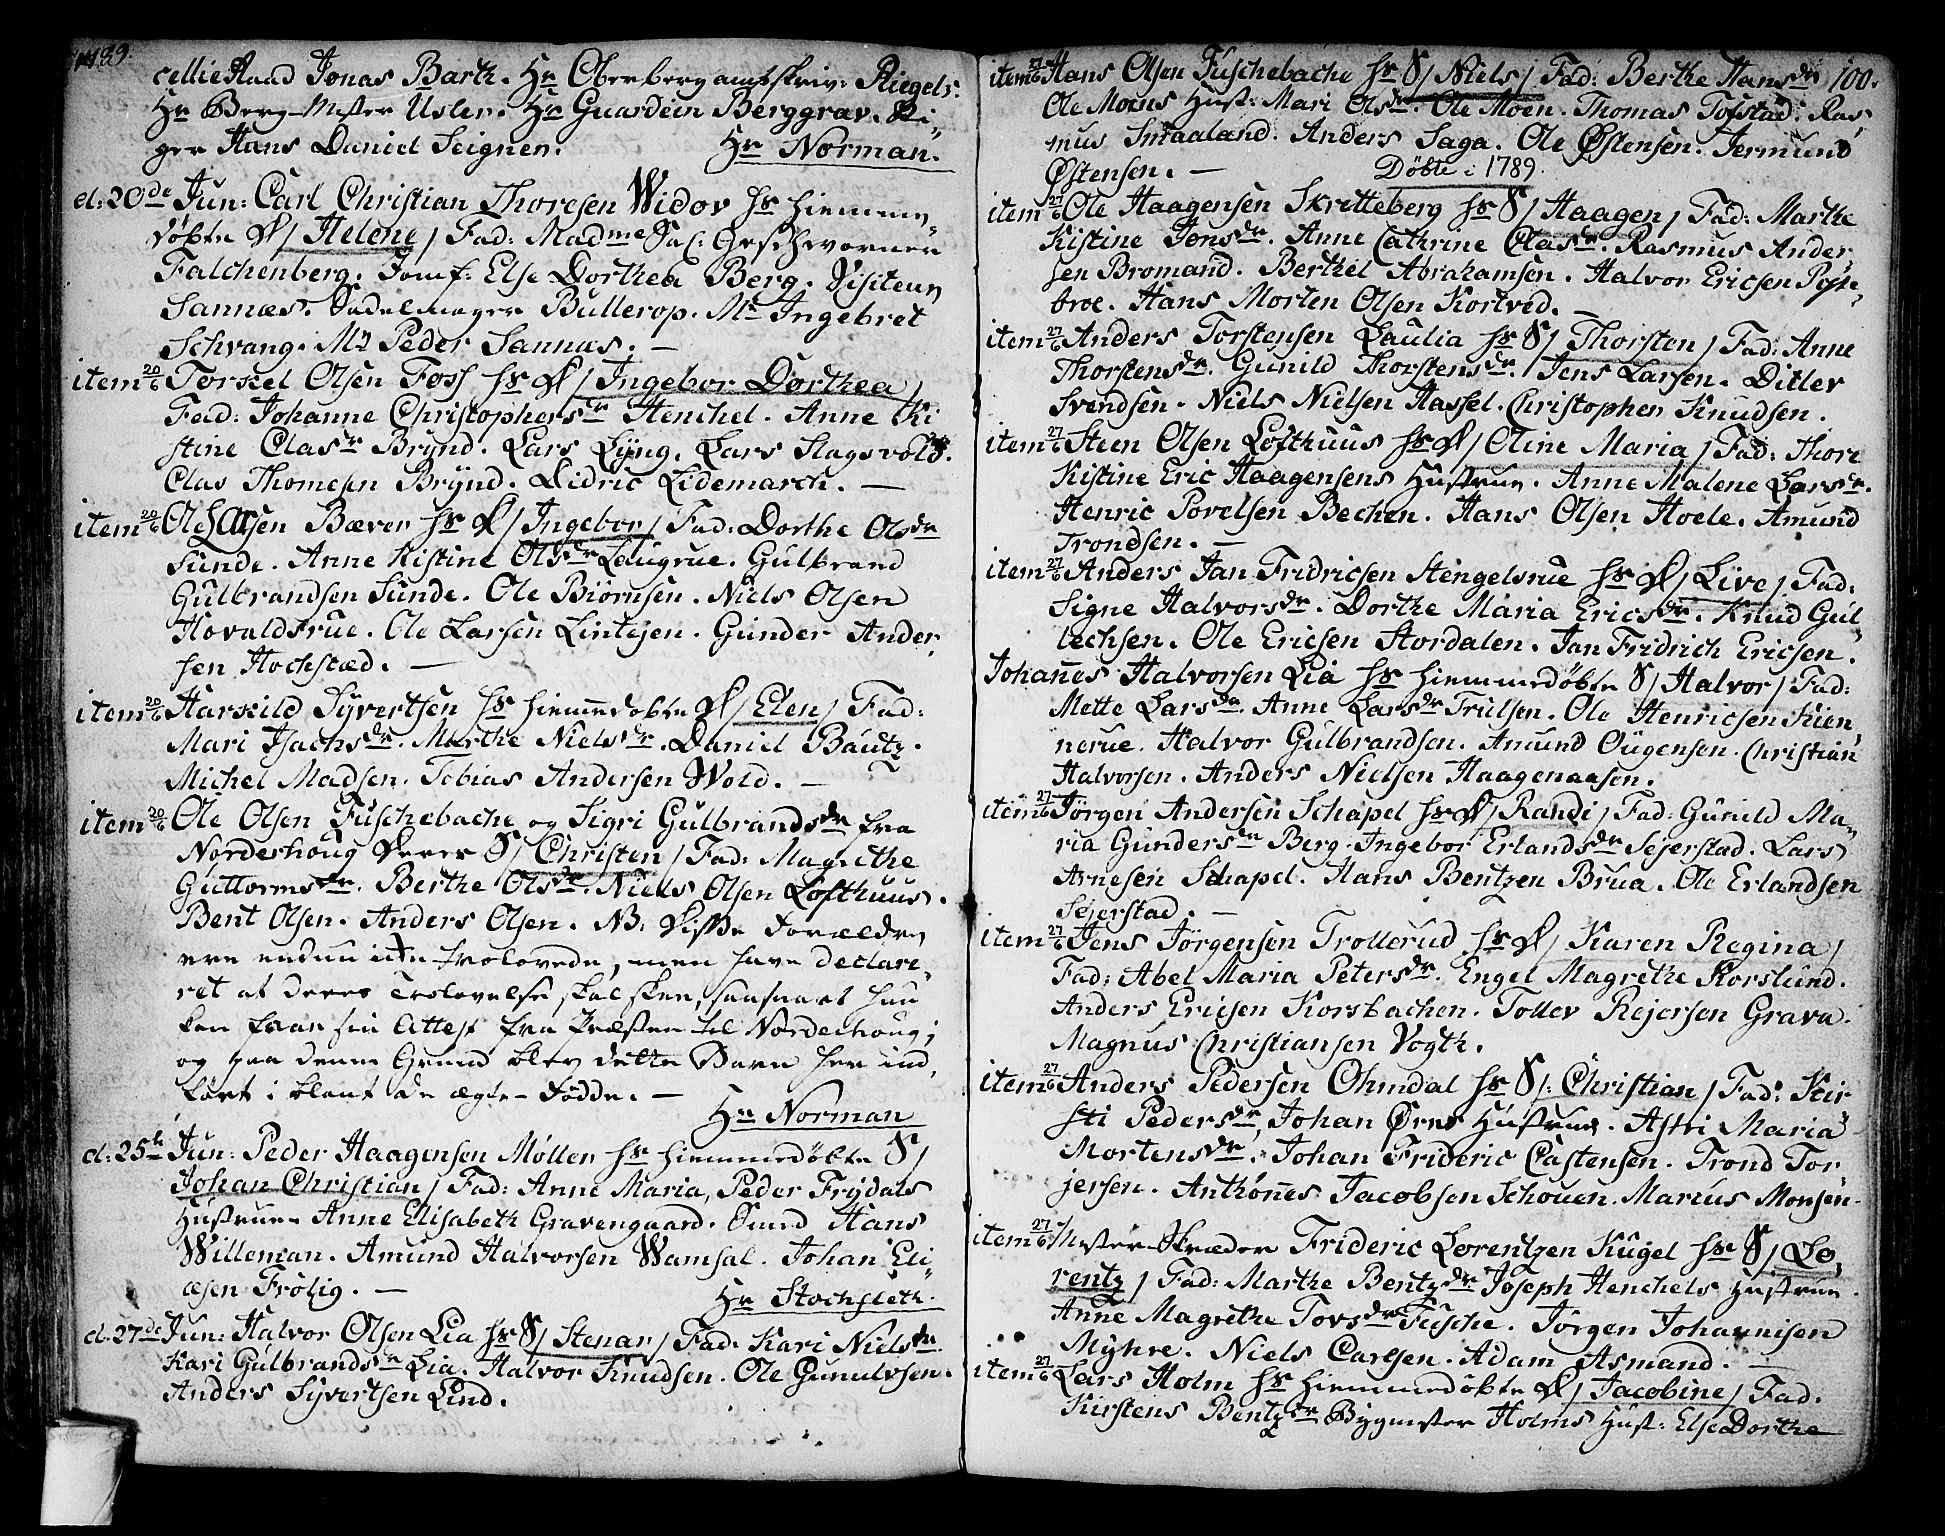 1789.
cellie Raad Jonas Barth. Hr Oberbergamtskriv: Riegels.
Hr Berg-Mester Usler. Hr Guardein Berggrav. Ri„
ger Hans Daniel Seignen. Hr Norman.
d: 20de Jun: Carl Christian Thoresen Widøv hs hiemme„
døbte D/ Helene/ Fad: Madme Sal: Geschworner
Falchenberg. Jomf: Else Dorthea Berg. Visiteur
Sannæs. Sadelmager Bullerop. Mr Ingebret
Schvang. Mr Peder Sannæs. —
item 20/6 Torkel Olsen Foss hs D/ Ingebor Dorthea/
Fad: Johanne Christophersdr Henchel. Anne Ki
stine Clasdr Brynd. Lars Lyng. Lars Slagsvold.
Clas Thomesen Brynd. Didric Lidemarch. —
item 20/6 Ole Olsen Bæver hs D/ Ingebor/ Fad: Dorthe Olsdr
Sunde. Anne Kistine Olsdr Laugrue. Gulbrand
Gulbrandsen Sunde. Ole Biørnsen. Niels Olsen
Hovaldsrue. Ole Larsen Lintejen. Gunder Ander„
sen Hochstæd. —
item 20/6 Harkild Syvertsen hs hiemmedøbte D/ Elen/ Fad:
Mari Isachsdr. Marthe Nielsdr. Daniel Bautz.
Michel Madsen. Tobias Andersen Wold. —
item 20/6 Ole Olsen Fuschebache og Sigri Gulbrandsdr fra
Norderhoug deres S/ Christen/ Fad: Magrethe
Guttormsdr. Berthe Olsdr. Niels Olsen Lofthuus.
Bent Olsen. Anders Olsen. NB: Disse Forældre
ere endnu icke trolovede, men have declare„
ret at deres Trolovelse skal skee, saasnart han
kan faae sin Attest fra Præsten til Norderhoug;
og paa denne Grund blev dette Barn her ind„
ført i blant de ægte-Fødde. —
Hr Norman
d: 25de Jun: Peder Haagensen Møller hs hiemmedøbte S/
Johan Christian/ Fad: Anne Maria, Peder Frydals
Hustrue. Anne Elisabeth Gravengaard. Smed Hans
Willeman. Amund Halvorsen Wamsal. Johan Eli„
æsen Frølig. — Hr Stochfleth.
d. 27de Jun: Halvor Olsen Lia hs S/ Stenar/ Fad: Kari Nielsdr.
Kari Gulbrandsdr Lia. Halvor Knudsen. Ole Gunulvsen.
Anders Syvertsen Lind.
item 27/6 Hans Olsen Fuschebache hs S/ Niels/ Fad: Berthe Hansdr 100.
Ole Moens Hust: Mari Olsdr. Ole Moen. Thomas Tofstad. Ras„
mus Smaaland. Anders Saga. Ole Østensen. Jermund
Østensen. — Døbte i 1789.
item 27/6 Ole Haagensen Skretteberg hs S/ Haagen/ Fad: Marthe
Kistine Jonsdr. Anne Cathrine Clasdr. Rasmus Ander„
sen Bromand. Berthel Abrahamsen. Halvor Ericsen Pose„
broe. Hans Morten Olsen Kortved. —
item 27/6 Anders Torstensen Laulia hs S/ Thorsten/ Fad: Anne
Thorstensdr. Gunild Thorstensdr. Jens Larsen. Ditlev
Svendsen. Niels Nielsen Hassel. Christopher Knudsen.
item 27/6 Steen Olsen Lofthuus hs D/ Oline Maria/ Fad: Thore
Kistine Eric Haagensens Hustrue. Anne Malene Larsdr.
Henric Povelsen Bechen. Hans Olsen Hoele. Amund
Trondsen. —
item 27/6 Anders Jan Fridricsen Stengelsrue hs D/ Live/ Fad:
Signe Halvorsdr. Dorthe Maria Ericsdr. Knud Gul„
lechsen. Ole Ericsen Stordalen. Jan Fridrich Ericsen.
Johannes Halvorsen Lia hs hiemmedøbte S/ Halvor/ Fad:
Mette Larsdr. Anne Larsdr Trulsen. Ole Henricsen Kien„
nerue. Halvor Gulbrandsen. Amund Ougensen. Christian
Halvorsen. Anders Nielsen Haagenaasen.
item 27/6 Jørgen Andersen Schapel hs D/ Randi/ Fad: Gunild Ma„
ria Gundersdr Berg. Ingebor Erlandsdr Sejerstad. Lars
Arnesen Schapel. Hans Bentzen Brua. Ole Erlandsen
Sejerstad. —
item 27/6 Jens Jørgensen Trollerud hs D/ Karen Regina/
Fad: Abel Maria Petersdr. Engel Magrethe Korslund.
Anders Ericsen Korsbachen. Tollev Rejersen Grava.
Magnus Christiansen Vogth.
item 27/6 Anders Pedersen Ohmdal hs S/: Christian/ Fad: Kir„
sti Pedersdr, Johan Ørns Hustrue. Astri Maria
Mortensdr. Johan Frideric Castensen. Trond Tor
jersen. Anthonnes Jacobsen Schouen. Marius Monsen.
item 27/6 Mester Skræder Frideric Lorentzen Kugel hs S/ Lo„
rentz/ Fad: Marthe Bentzdr Joseph Henchels Hustrue.
Anne Magrethe Torsdr Fusche. Jørgen Johannisen
Myhre. Niels Carlsen. Adam Asmand. —
item 27/6 Lars Holm hs hiemmedøbte D/ Jacobine/ Fad:
Kirstens Bentzdr Bygmester Holms Hust: Else Dorthe